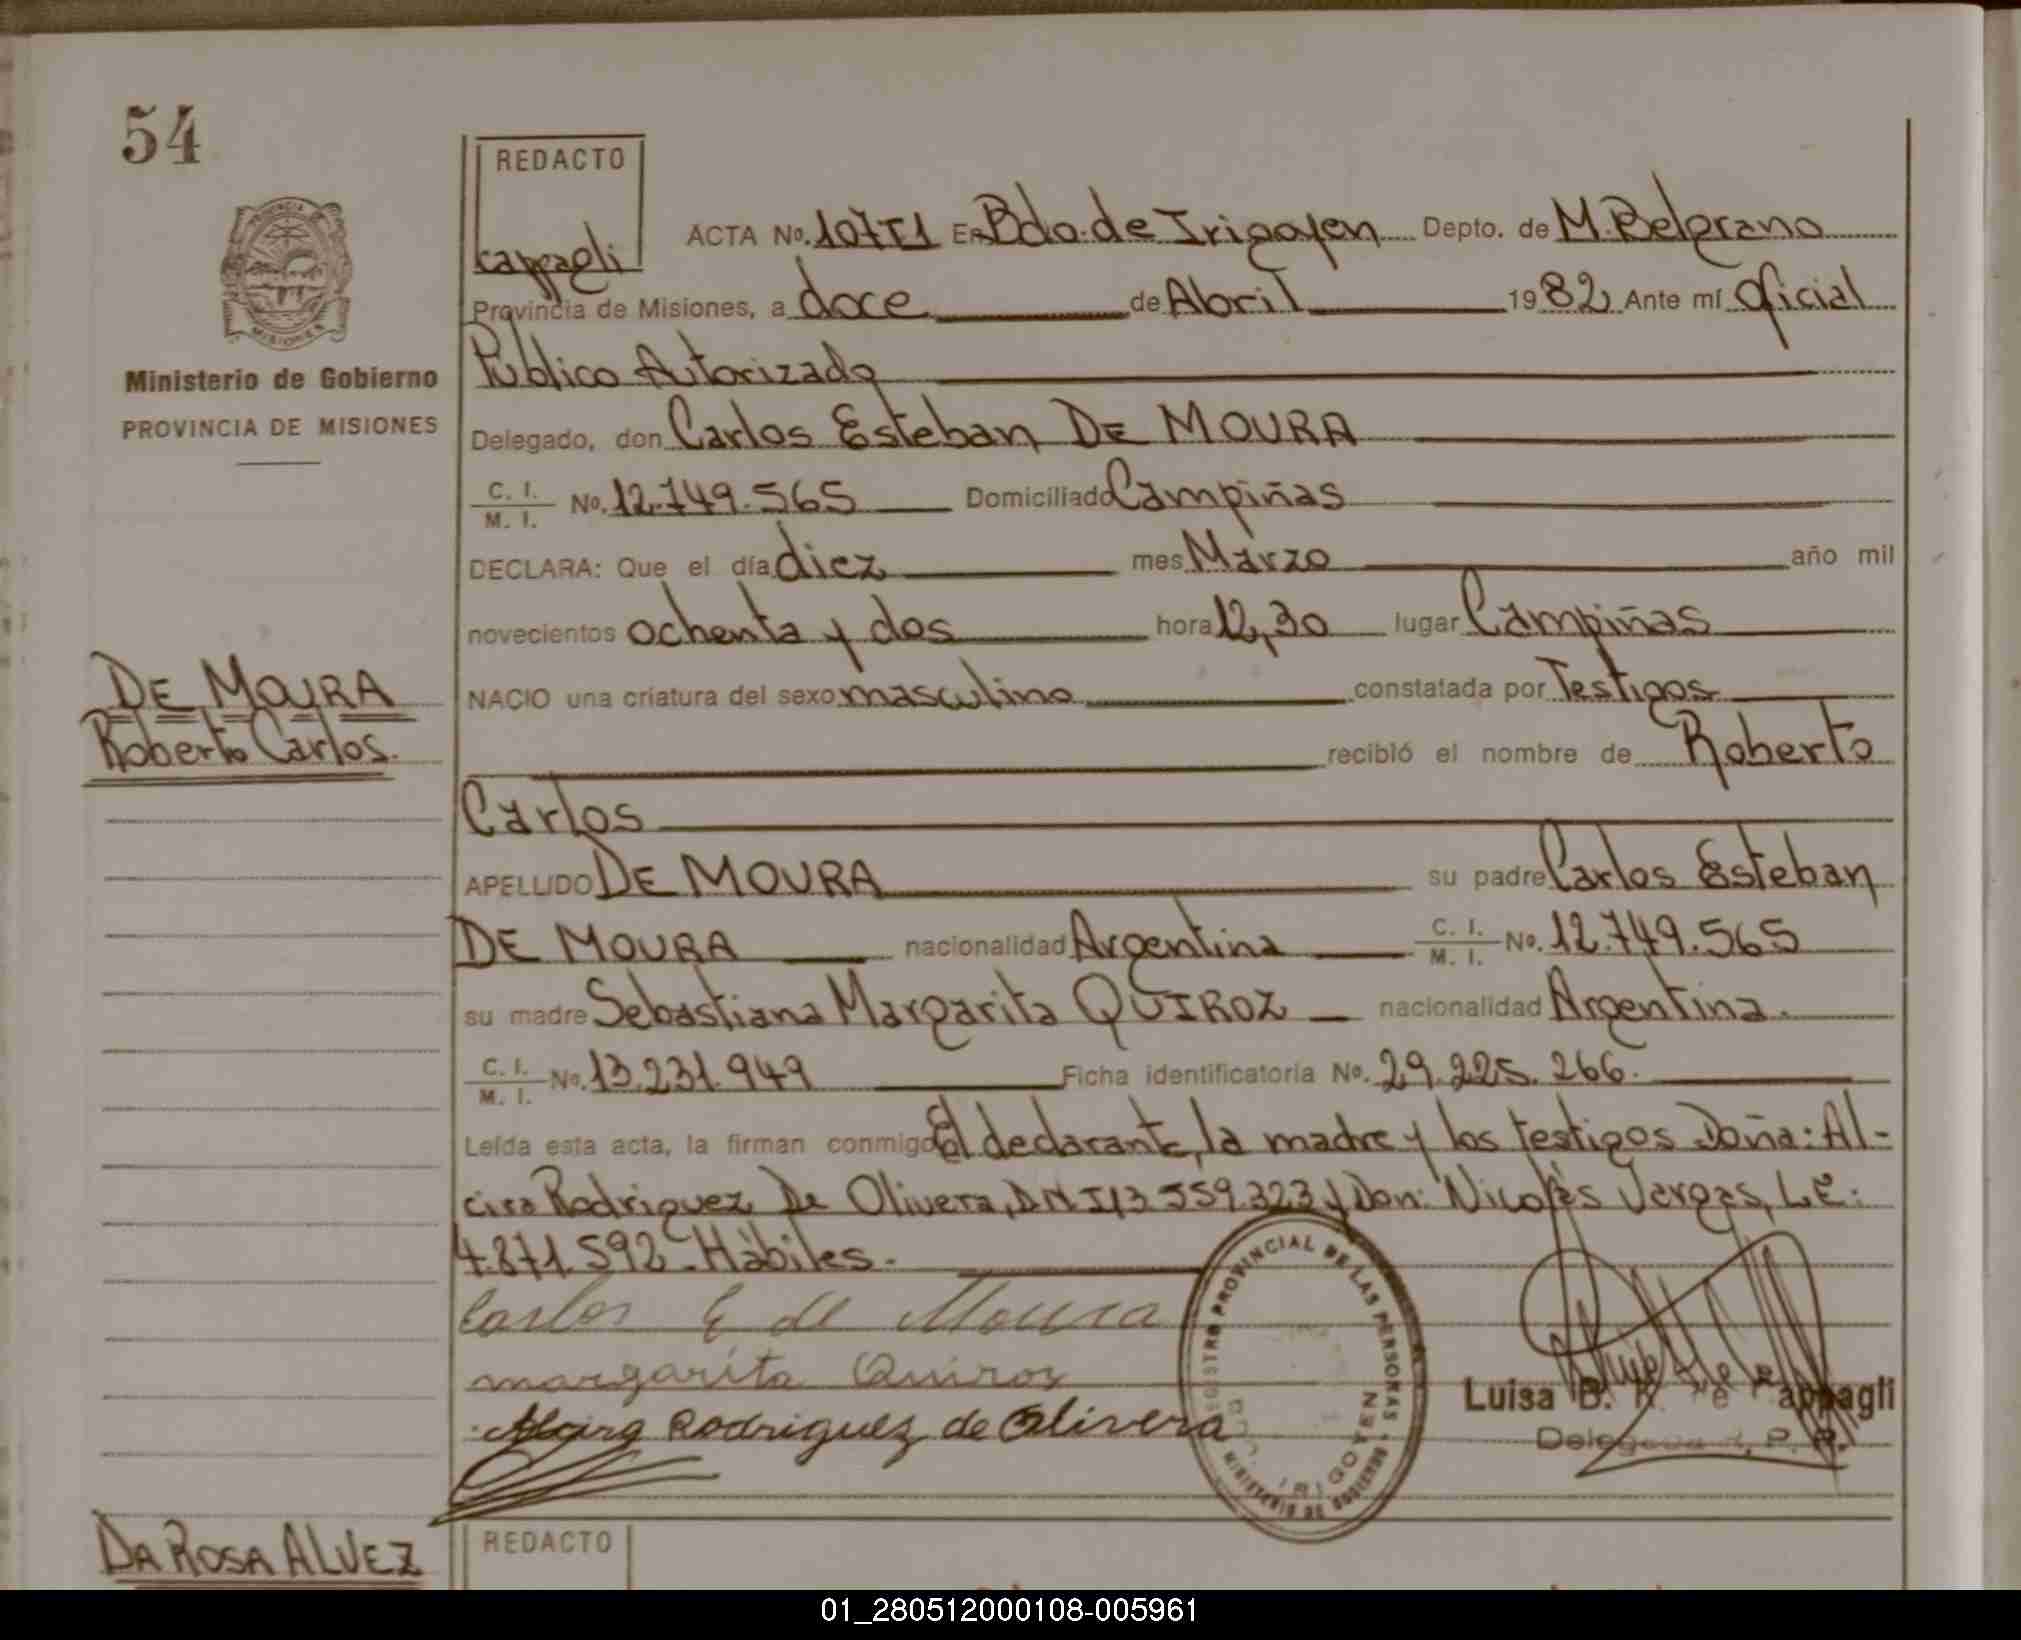 54
REDACTO
Cappagli
ACTA No. 107T1 En Bdo. de Irigoyen Depto. de M. Belgrano
Provincia de Misiones, a doce de Abril 1982 Ante mí Oficial
Público Autorizado
Ministerio de Gobierno
PROVINCIA DE MISIONES
Delegado, don Carlos Esteban DE MOURA
C. I. / M. I. No. 12.749.565 Domiciliado Campiñas
DECLARA: Que el día diez mes Marzo año mil
novecientos ochenta y dos hora 12,30 lugar Campiñas
DE MOURA
Roberto Carlos.
NACIO una criatura del sexo masculino constatada por Testigos
recibió el nombre de Roberto
Carlos
APELLIDO DE MOURA su padre Carlos Esteban
DE MOURA nacionalidad Argentina C. I. / M. I. No. 12.749.565
su madre Sebastiana Margarita QUIROZ nacionalidad Argentina.
C. I. / M. I. No. 13.231.949 Ficha identificatoria No. 29.225.266.
Leída esta acta, la firman conmigo El declarante, la madre y los testigos Doña: Al-
cira Rodriguez De Olivera, DNI 13.559.323 y Don: Nicolás Vargas, L.E:
4.871.592 - Hábiles.
Carlos E de Moura
margarita Quiroz
Alcira Rodriguez de Olivera
REGISTRO PROVINCIAL DE LAS PERSONAS
MINISTERIO DE GOBIERNO
BDO. IRIGOYEN
Luisa B. K. de Cappagli
Delegada R. P. P.
DA ROSA ALVEZ
REDACTO
01_280512000108-005961